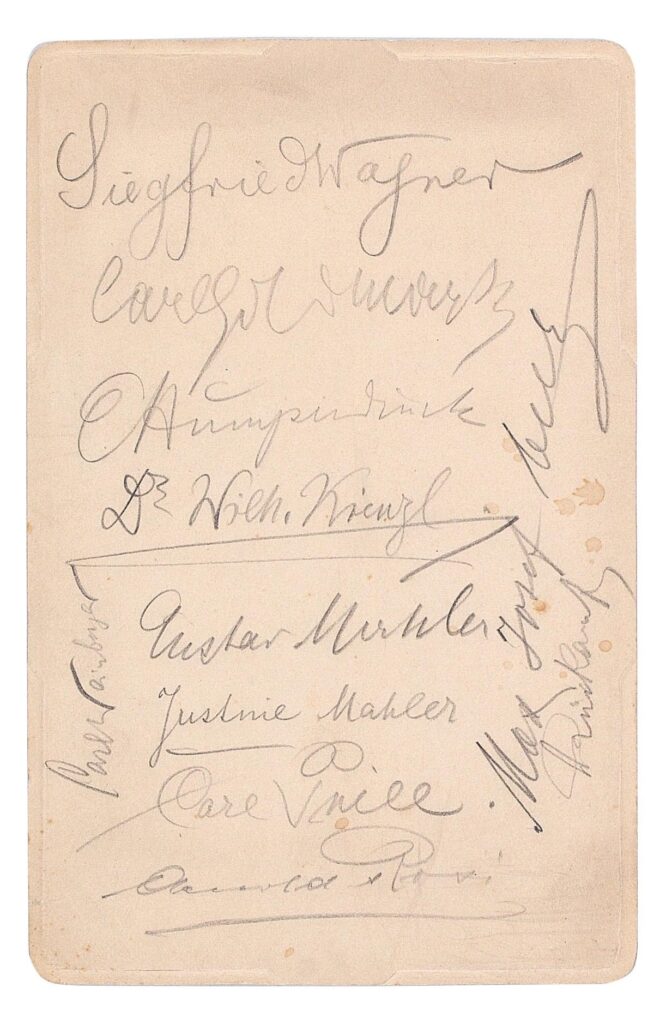 Siegfried Wagner
Carl Goldmark
E Humperdinck
Dr Wilh. Kienzl
Gustav Mahler
Justine Mahler
Carl Prill
Arnold Rosé
Max Josef Beer
Carl Weinberger